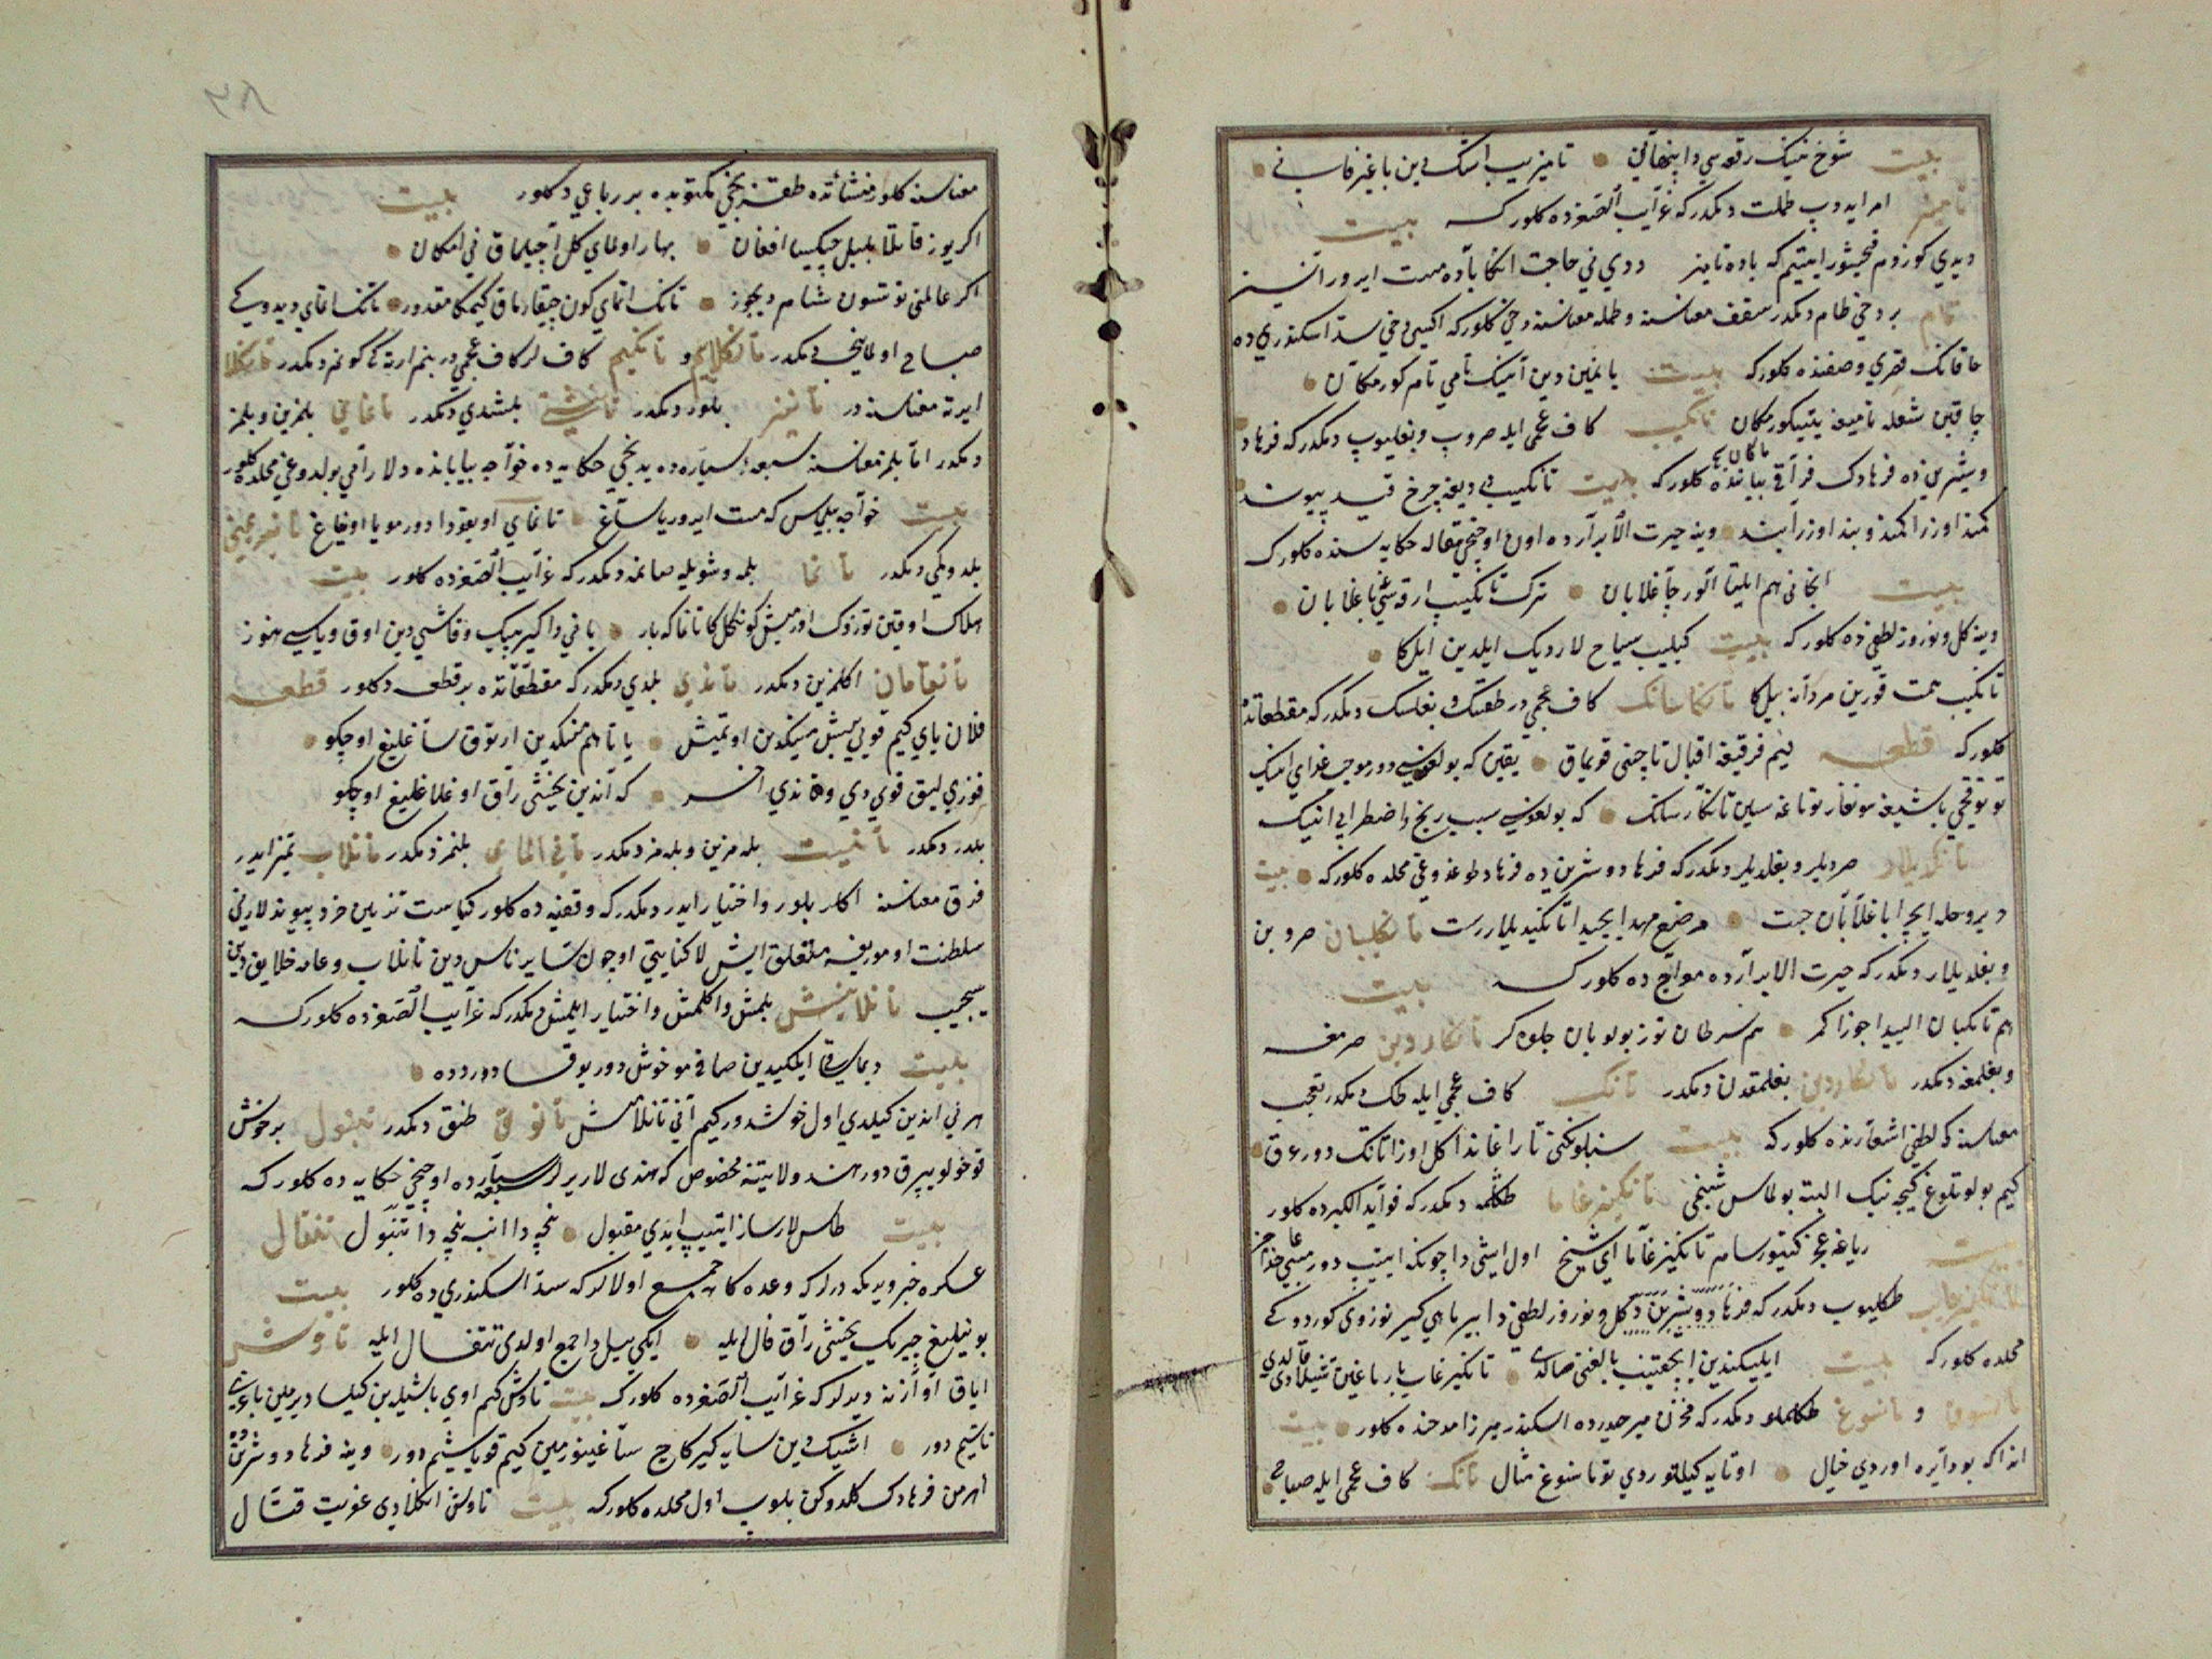 بيت شوخ نينك رقعه سي دا پنهاني تاميزيب اشك دين باغير قاني
تاميز امر ايدوب طملت ديمكدر كه غرآيب الصغرده كلور كه بيت
ديدي كوزوم قيشور ايتيم كه باده تاميز ديدي ني حاجت انكا باده مست ايرور آنسيز
تام بر دخي طام ديمكدر سقف معناسنه وطمله معناسنه دخي كلور كه اكيسي دخي سد اسكندري ده
خاقاننك قصري وصفنده كلور كه بيت يانمين دين آنينك تامي تام كور مكان
چاقين شعله تاميغه يتيبكور مكان تانكيب كاف عجمي ايله صروب وبغليوب ديمكدر كه فرهاد
وشيرين ده فرهادك فراقي بياننده كلور كه بيت تانكيب دي ديغه چرخ قيد پيوند
كمند اوزرا كمند وبند اوزرا بند وينه حيرت الابرارده اون اوچنجي مقاله حكايه سنده كلور كه
بيت انجاني هم ايليتا آلور چاغلابان ترك تانكيب ارقه غني باغلابان
وينه كل ونوروز لطفي ده كلور كه بيت كيليب سياح لارديك ايلدين ايل كا
تانكيب همت قورين مردانه بيل كا تانكا سانك كاف عجمي در طقسك وبغلسك ديمكدر كه مقطعاتده
كلور كه قطعه نيم فرقيغه اقبال تاجني قويماق يقين كه بولغوسي دور موجب غذاي انينك
توتوقچي باشيغه سونغار توتاغه سين تانكار سانك كه بولغوسي سبب رنج واضطرابي انينك
تانكديلار صرديلر وبغلديلر ديمكدر كه فرهاد وشيرين ده فرهاد طوغدوغي محلده كلور كه بيت
ديروحله ايچرا باغلابان چست مرضع مهد ايچيدا تانكديلار رست تانكليبان صروبن
وبغلديلار ديمكدر كه حيرت الابرارده معراج ده كلور كه بيت
هم تانكيبان الييدا جوزا كمر هم سرطان توز بولوبان جلوه كر تانكاردين صرمغه
وبغلمغه ديمكدر تانكاردين بغلمقدن ديمكدر تانك كاف عجمي ايله طك ديمكدر تعجب
معناسنه كه لطفي اشعارنده كلور كه بيت سنبلونكني تاراغاندا كل اوزا تانك دور عرق
كيم بولوتلوغ كيجه نينك البته بولماس شبنمي تانكيزغاما طكلمه ديمكدر كه فوآيد الكبرده كلور
بيت رياغه عجز كيتورسام تانكيزغاما اي شيخ اول ايشي دا چونكه ايتيب دور مبني عاجز
تانكيزغاب طكليوب ديمكدر كه فرهاد وشيرين ده كل ونوروز لطفي دا بير ماهي كير نوروزي كوردوكي
محلده كلور كه بيت ايليكيندين ايچيتيب يالغيز صالدي تانكيزغاب بارماغين تيشلادي قالدي
تانسوق و تانسوغ طكلملو ديمكدر كه مخزن ميرحيدرده اسكندر ميرزا مدحنده كلور بيت
انداكه بو دآيره اوردي خيال اوتايه كيلتوردي تو تانسوغ مثال تانك كاف عجمي ايله صباح
معناسنه كلور منشآتده طقسنجي مكتوبده بر رباعي ده كلور بيت
اكر يوز قاتلا بلبل چيكسا افغان بهار اولماي كل آچيلماق ني امكان
اكر عالمني توتسون شام ديجور تانك اتماي كون چيقارماق كيمكا مقدور تانك اتماي ديدوكي
صباح اولماينجي ديمكدر تانكلاييم و تانكيم كاف لر كاف عجمي در بنم ارته كي كونم ديمكدر تانكلا
ايرته معناسنه در تانير بلور ديمكدر تانيشتي بلشدي ديمكدر تاناي بلمزين وبلمز
ديمكدر اما بلمز معناسنه سبعه سيارهده يدنجي حكايه ده خواجه بيابانده دلارامي بولدوغي محلده كلور
بيت خواجه بيلماس كه مست ايرور يا ساغ تانماي اويقودا دور مو يا اويغاغ
بلدوكي ديمكدر تانما بلمه وشويله صانمه ديمكدر كه غرآيب الصغرده كلور بيت
هلاك اوقين توزوك اورميش كونكل كا تانما كه بار ياني دا كيربيك وقاشي دين اوق وياسي هنوز
تانيمان اكلمزين ديمكدر تاندي بلدي ديمكدر كه مقطعاتده بر قطعه ده كلور قطعه
فلان باي كيم قويي بيش مينكدين اوتميش يانا هم مينكدين ارتوق ساغليغ اوچكو
قوزي ليق قوي دي وقاندي آخر كه آندين يخشي راق اوغلاغليغ اوچكو
بلدر ديمكدر تانيت بلمزين وبلمز ديمكدر تاني الماي بلنمز ديمكدر تانلاب تميز ايدر
فرق معناسنه اكلر بلور واختيار ايدر ديمكدر كه وقفيه ده كلور كياست تزيين خردپيوندلارني
سلطنت امورغه متعلق ايش لار كفايتي اوچون ساير ناس دين تانلاب وعامه خلايق دين
سيچيب تانلاميش بلمش واكلمش واختيار ايلمش ديمكدر كه غرآيب الصغرده كلور كه
بيت ديماي ساقي ايلكيدين صافي مو خوش دور يوقسا دورد ده
هر ني اندين كيلدي اول خوشدور كيم آني تانلاميش تانوق طنق ديمكدر تنبول بر خوش
قوخولو يپرق دور هند ولايتنه مخصوص كه هندي لار يرلر سبعه سيارهده اوچنجي حكايه ده كلور كه
بيت طاس لار ساز ايتيب ايدي مقبول نيچه دا انبه نيچه دا تنبول تنقال
عسكره خبر ويرمكه درلر كه وعده كاه جمع اولالر كه سد اسكندري ده كلور بيت
بو نيليغ چيريك يخشي راق فال ايله ايكي ييل دا جمع اولدي تنقال ايله تاوش
اياق آوازنه ديرلر كه غرآيب الصغرده كلور كه بيت تاوش كم اوي باشيدين كيلسا ديرمين
تاشيم دور اشيك دين سايه كيركاج ساغينورمين كيم قوياشيم دور وينه فرهاد وشيرين ده
اهرمن فرهادك كلدوكن بلوب اول محلده كلور كه بيت تاوشن انكلادي عفريت قتال
٣٨